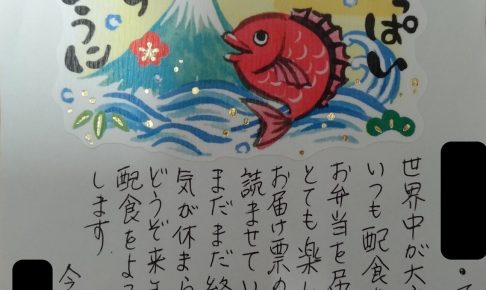 っぱい
す
ように
世界中が大
いつも配食
お弁当を届
とても楽し
お届け票の
読ませてい
まだまだ終
気が休まら
どうぞ来
配食をよ
します。
今